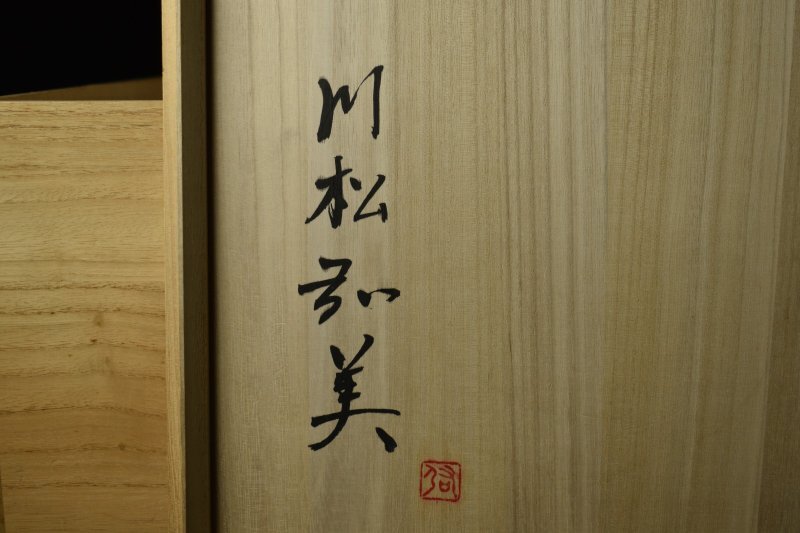 川松弘美
弘